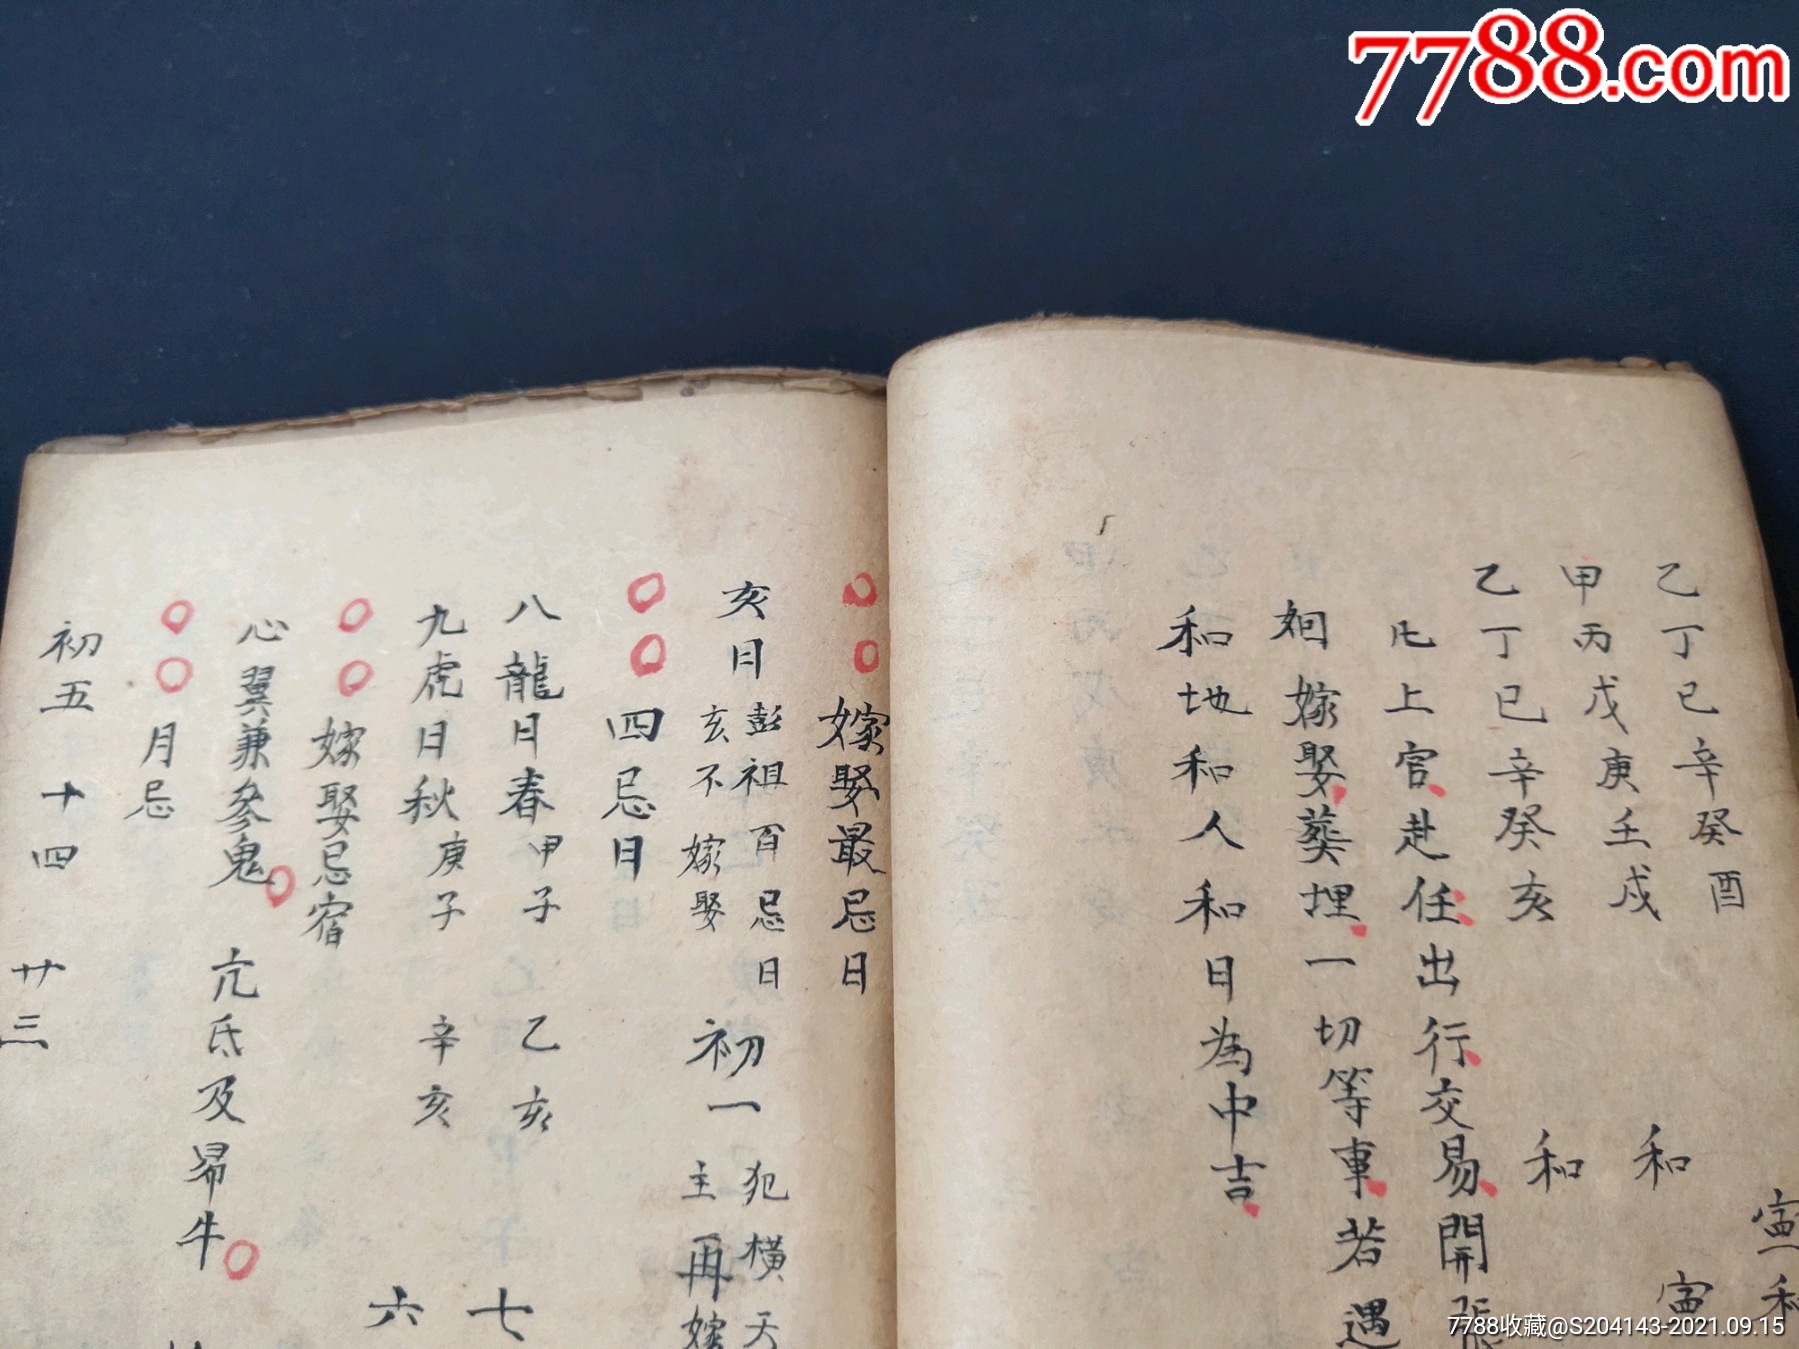 7788.com
乙丁巳辛癸酉
甲丙戊庚壬戌 和
乙丁巳辛癸亥 和
上官赴任出行交易開張
嫁娶葬埋一切等事若遇
和地和人和日為中吉
嫁娶最忌日
亥日
彭祖百忌日
亥不嫁娶
初一
犯橫天
主再嫁
四忌日
八龍日春甲子 乙亥 七
九虎日秋庚子 辛亥 六
嫁娶忌宿
心翼兼參鬼 亢氐及昴牛
月忌
初五 十四 廿三
7788收藏@S204143-2021.09.15